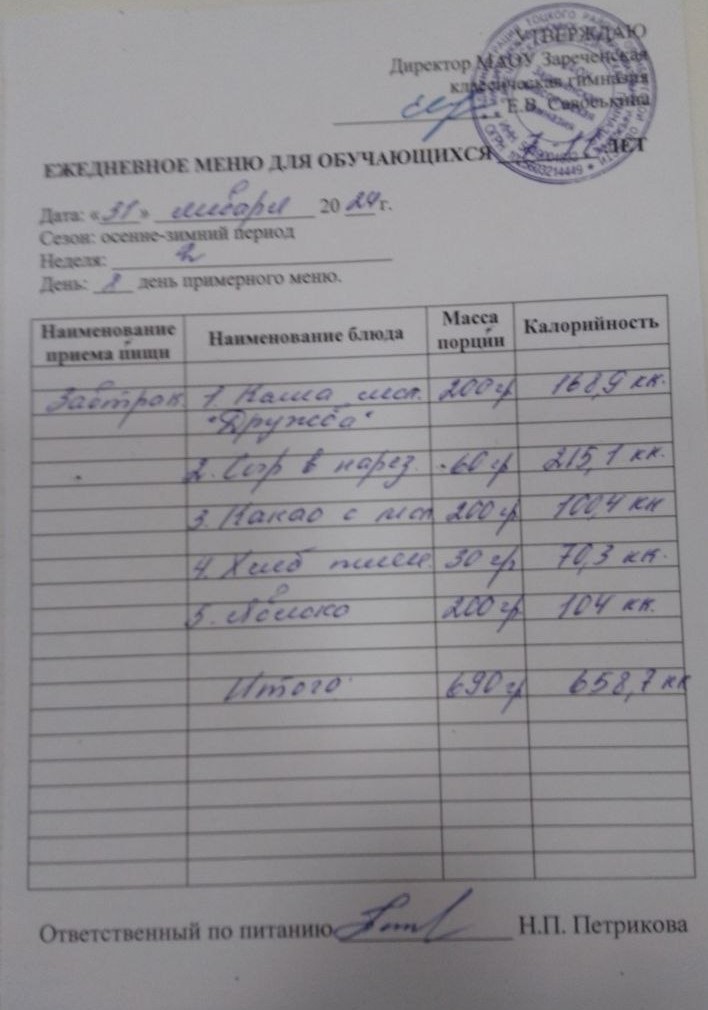 УТВЕРЖДАЮ
Директор МАОУ Зареченская
классическая гимназия
Е.В. Савоськина
ЕЖЕДНЕВНОЕ МЕНЮ ДЛЯ ОБУЧАЮЩИХСЯ 7-11 ЛЕТ
Дата: «31» января 2024 г.
Сезон: осенне-зимний период
Неделя: 2
День: 8 день примерного меню.
Наименование приема пищи Наименование блюда Масса порции Калорийность
Завтрак 1. Каша мол. 200 гр 168,9 кк.
"Дружба"
2. Сыр в нарез. 60 гр 215,1 кк.
3. Какао с мол 200 гр 100,4 кк
4. Хлеб пшен. 30 гр 70,3 кк.
5. Яблоко 200 гр 104 кк.
Итого: 690 гр 658,7 кк
Ответственный по питанию Н.П. Петрикова